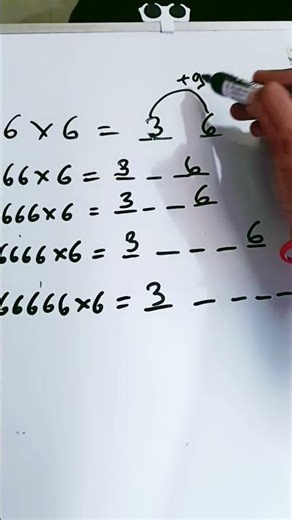 +9
6 × 6 = 3 6
66 × 6 = 3 _ 6
666 × 6 = 3 _ _ 6
6666 × 6 = 3 _ _ _ 6
66666 × 6 = 3 _ _ _ _